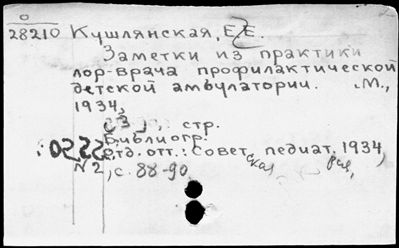 28210 Кушлянская, Е.Е.
Заметки из практики
лор-врача профилактической
детской амбулатории. М.,
1934,
с., стр.
Библиогр:
Отд. отт.: Советская педиатрия, 1934,
N 2, с. 88-90.